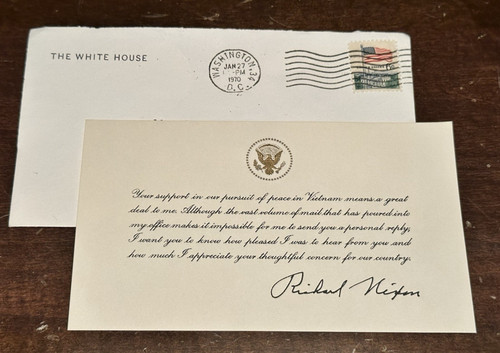 THE WHITE HOUSE
WASHINGTON
JAN 27
PM
1970
D.C.
Your support in our pursuit of peace in Vietnam means a great
deal to me. Although the vast volume of mail that has poured into
my office makes it impossible for me to send you a personal reply,
I want you to know how pleased I was to hear from you and
how much I appreciate your thoughtful concern for our country.
Richard Nixon